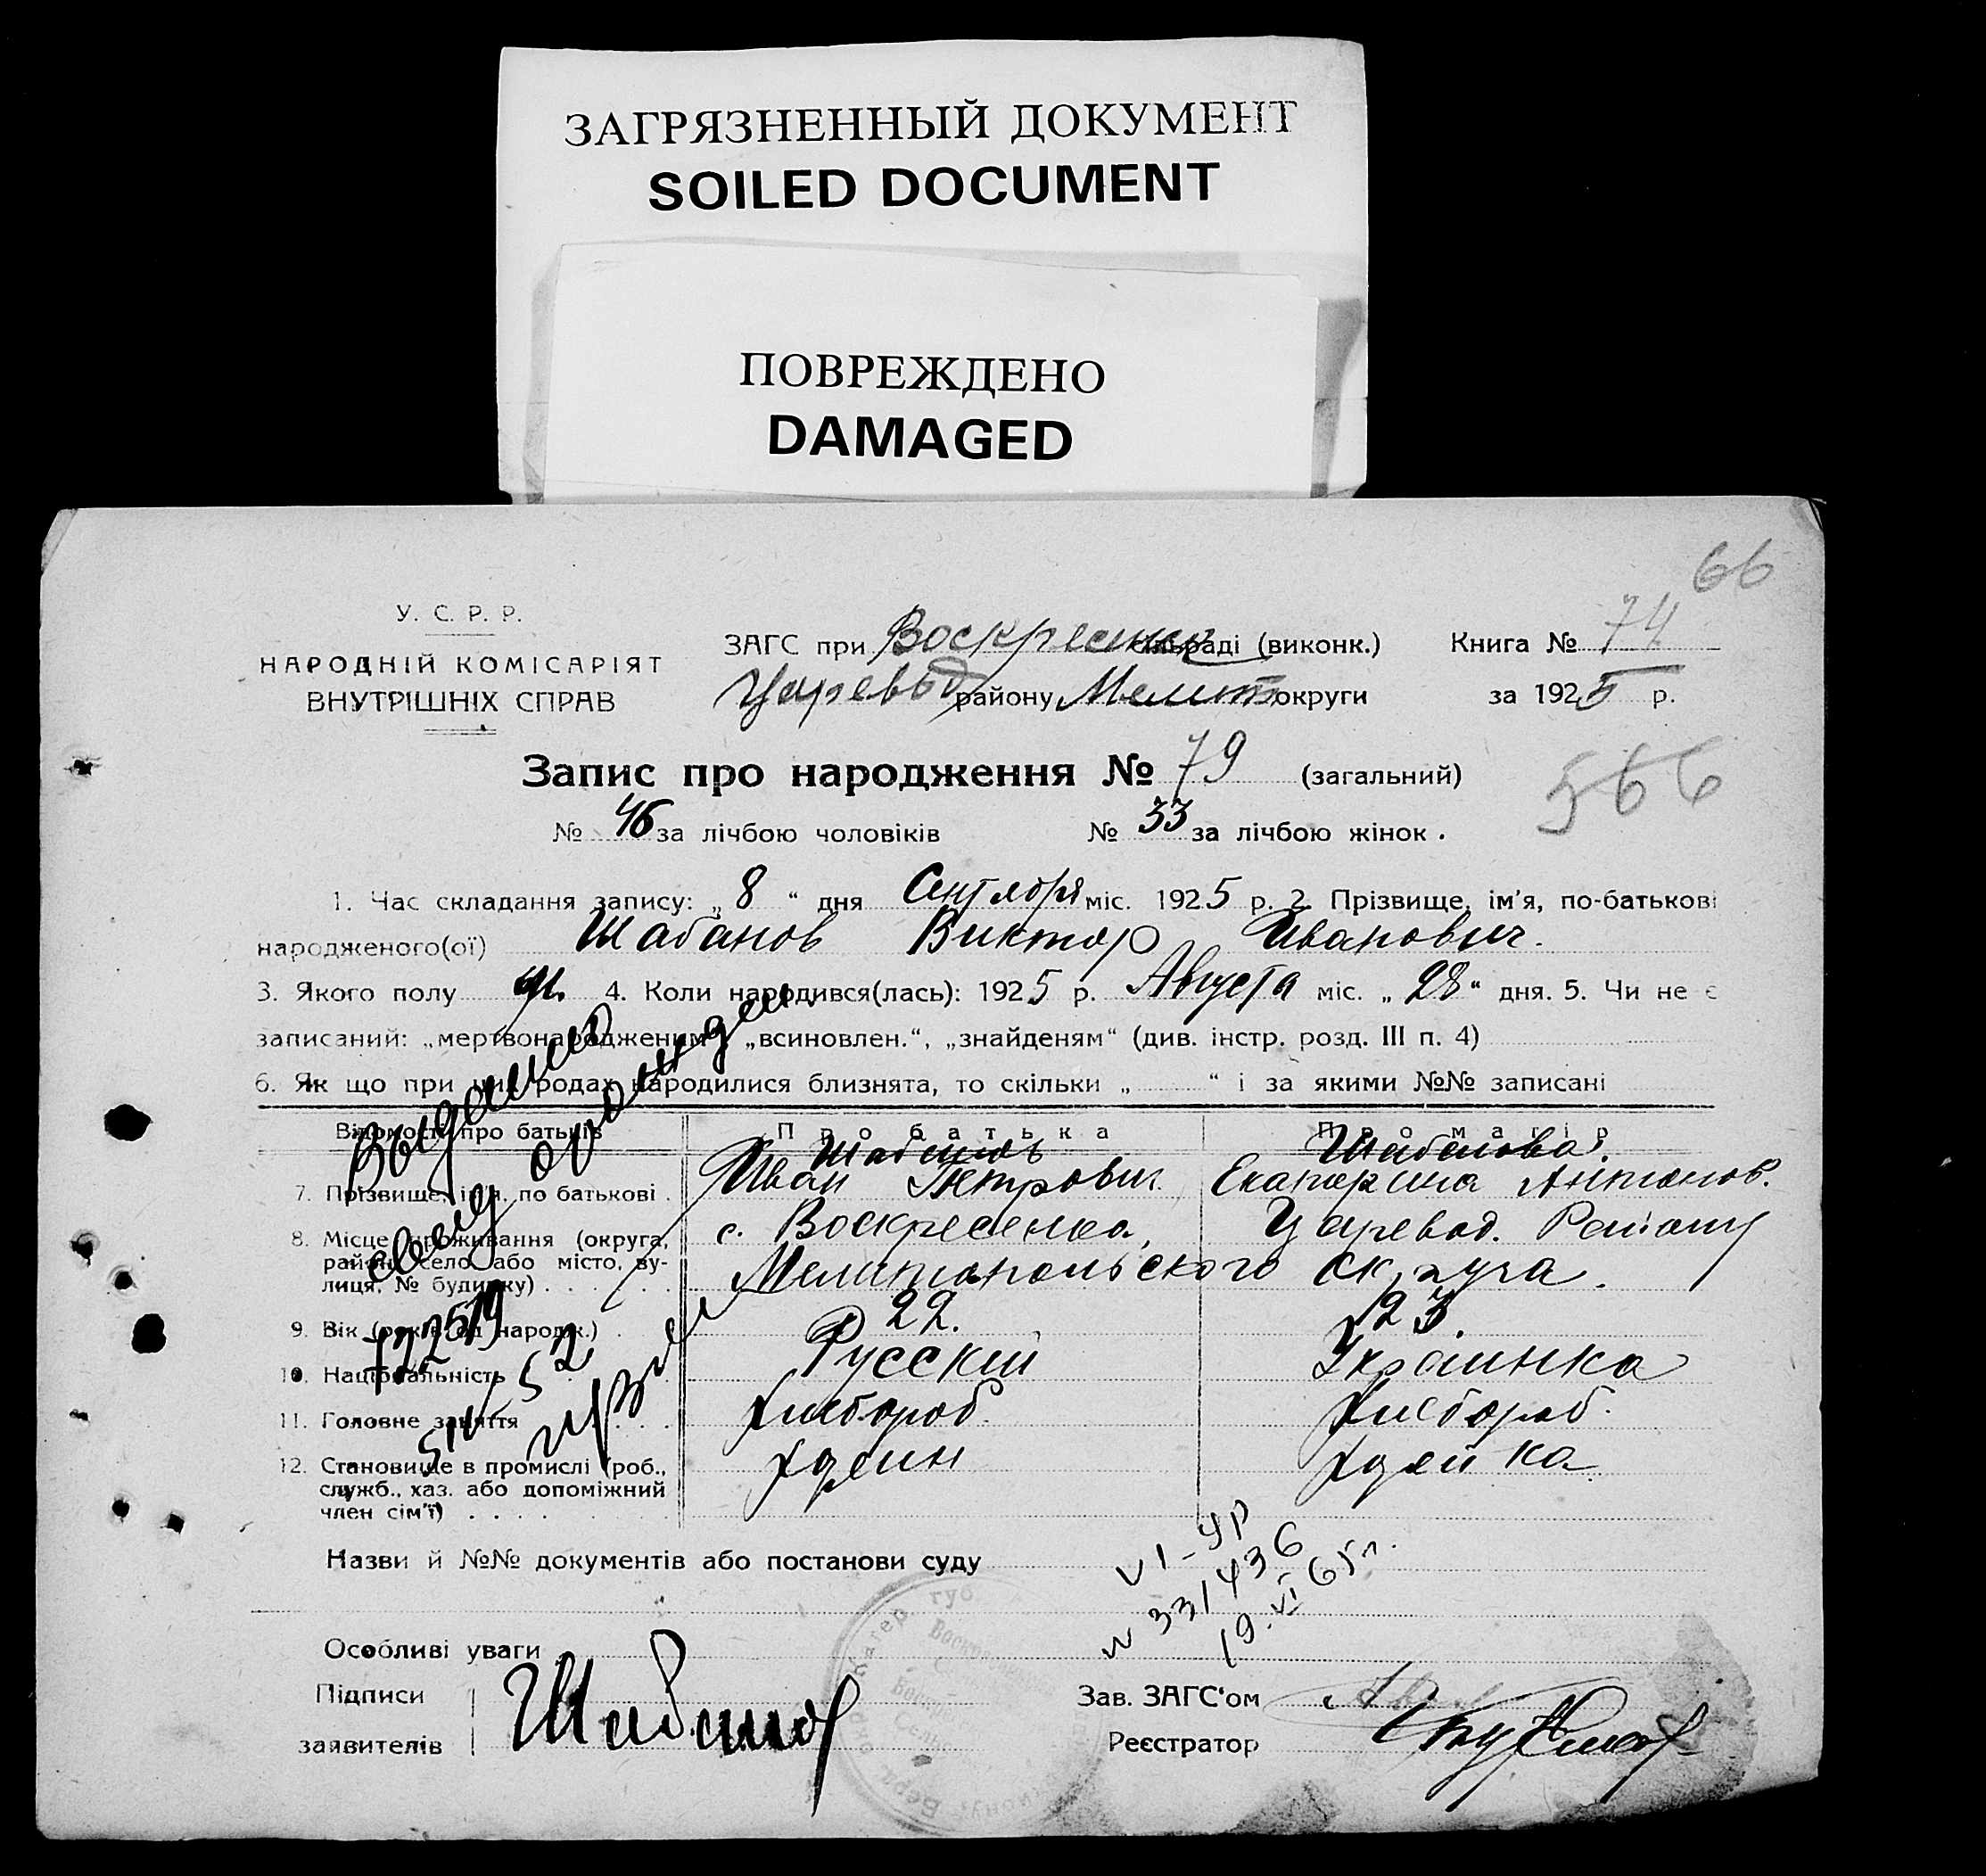 ЗАГРЯЗНЕННЫЙ ДОКУМЕНТ
SOILED DOCUMENT
ПОВРЕЖДЕНО
DAMAGED
66
У. С. Р. Р.
НАРОДНІЙ КОМІСАРІЯТ
ВНУТРІШНІХ СПРАВ
ЗАГС при Воскресенск сільраді (виконк.) Книга № 74
Царевод району Мелит округи за 1925 р.
Запис про народження № 79 (загальний)
566
№ 46 за лічбою чоловіків № 33 за лічбою жінок.
1. Час складання запису: „8“ дня Сентября міс. 1925 р. 2. Прізвище, ім'я, по-батькові
народженого(ої) Шабанов Виктор Иванович.
3. Якого полу ч. 4. Коли народився(лась): 1925 р. Августа міс. „28“ дня. 5. Чи не є
записаний: „мертвонародженим“, „всиновлен.“, „знайденям“ (див. інстр. розд. III п. 4)
6. Як що при цих родах народилися близнята, то скільки „ “ і за якими №№ записані
Відомості про батьків Про батька Про матір
Шабанов Шабанова.
7. Прізвище, ім'я, по батькові. Иван Петрович Екатерина Антонов.
8. Місце проживання (округа, с. Воскресенка, Царевод. Району
район, село або місто, ву-
лиця, № будинку) . . . Мелитопольского округа.
9. Вік (років од народж.) 22. 23.
10. Національність Русский Украинка
11. Головне заняття Хлебороб. Хлебороб.
12. Становище в промислі (роб.,
служб., хаз. або допоміжний
член сім'ї) . . . .
Назви й №№ документів або постанови суду
VI-УР
№ 331436
19.VI 65 г.
Особливі уваги
Підписи
заявителів Шабанов
Зав. ЗАГС'ом
Реєстратор